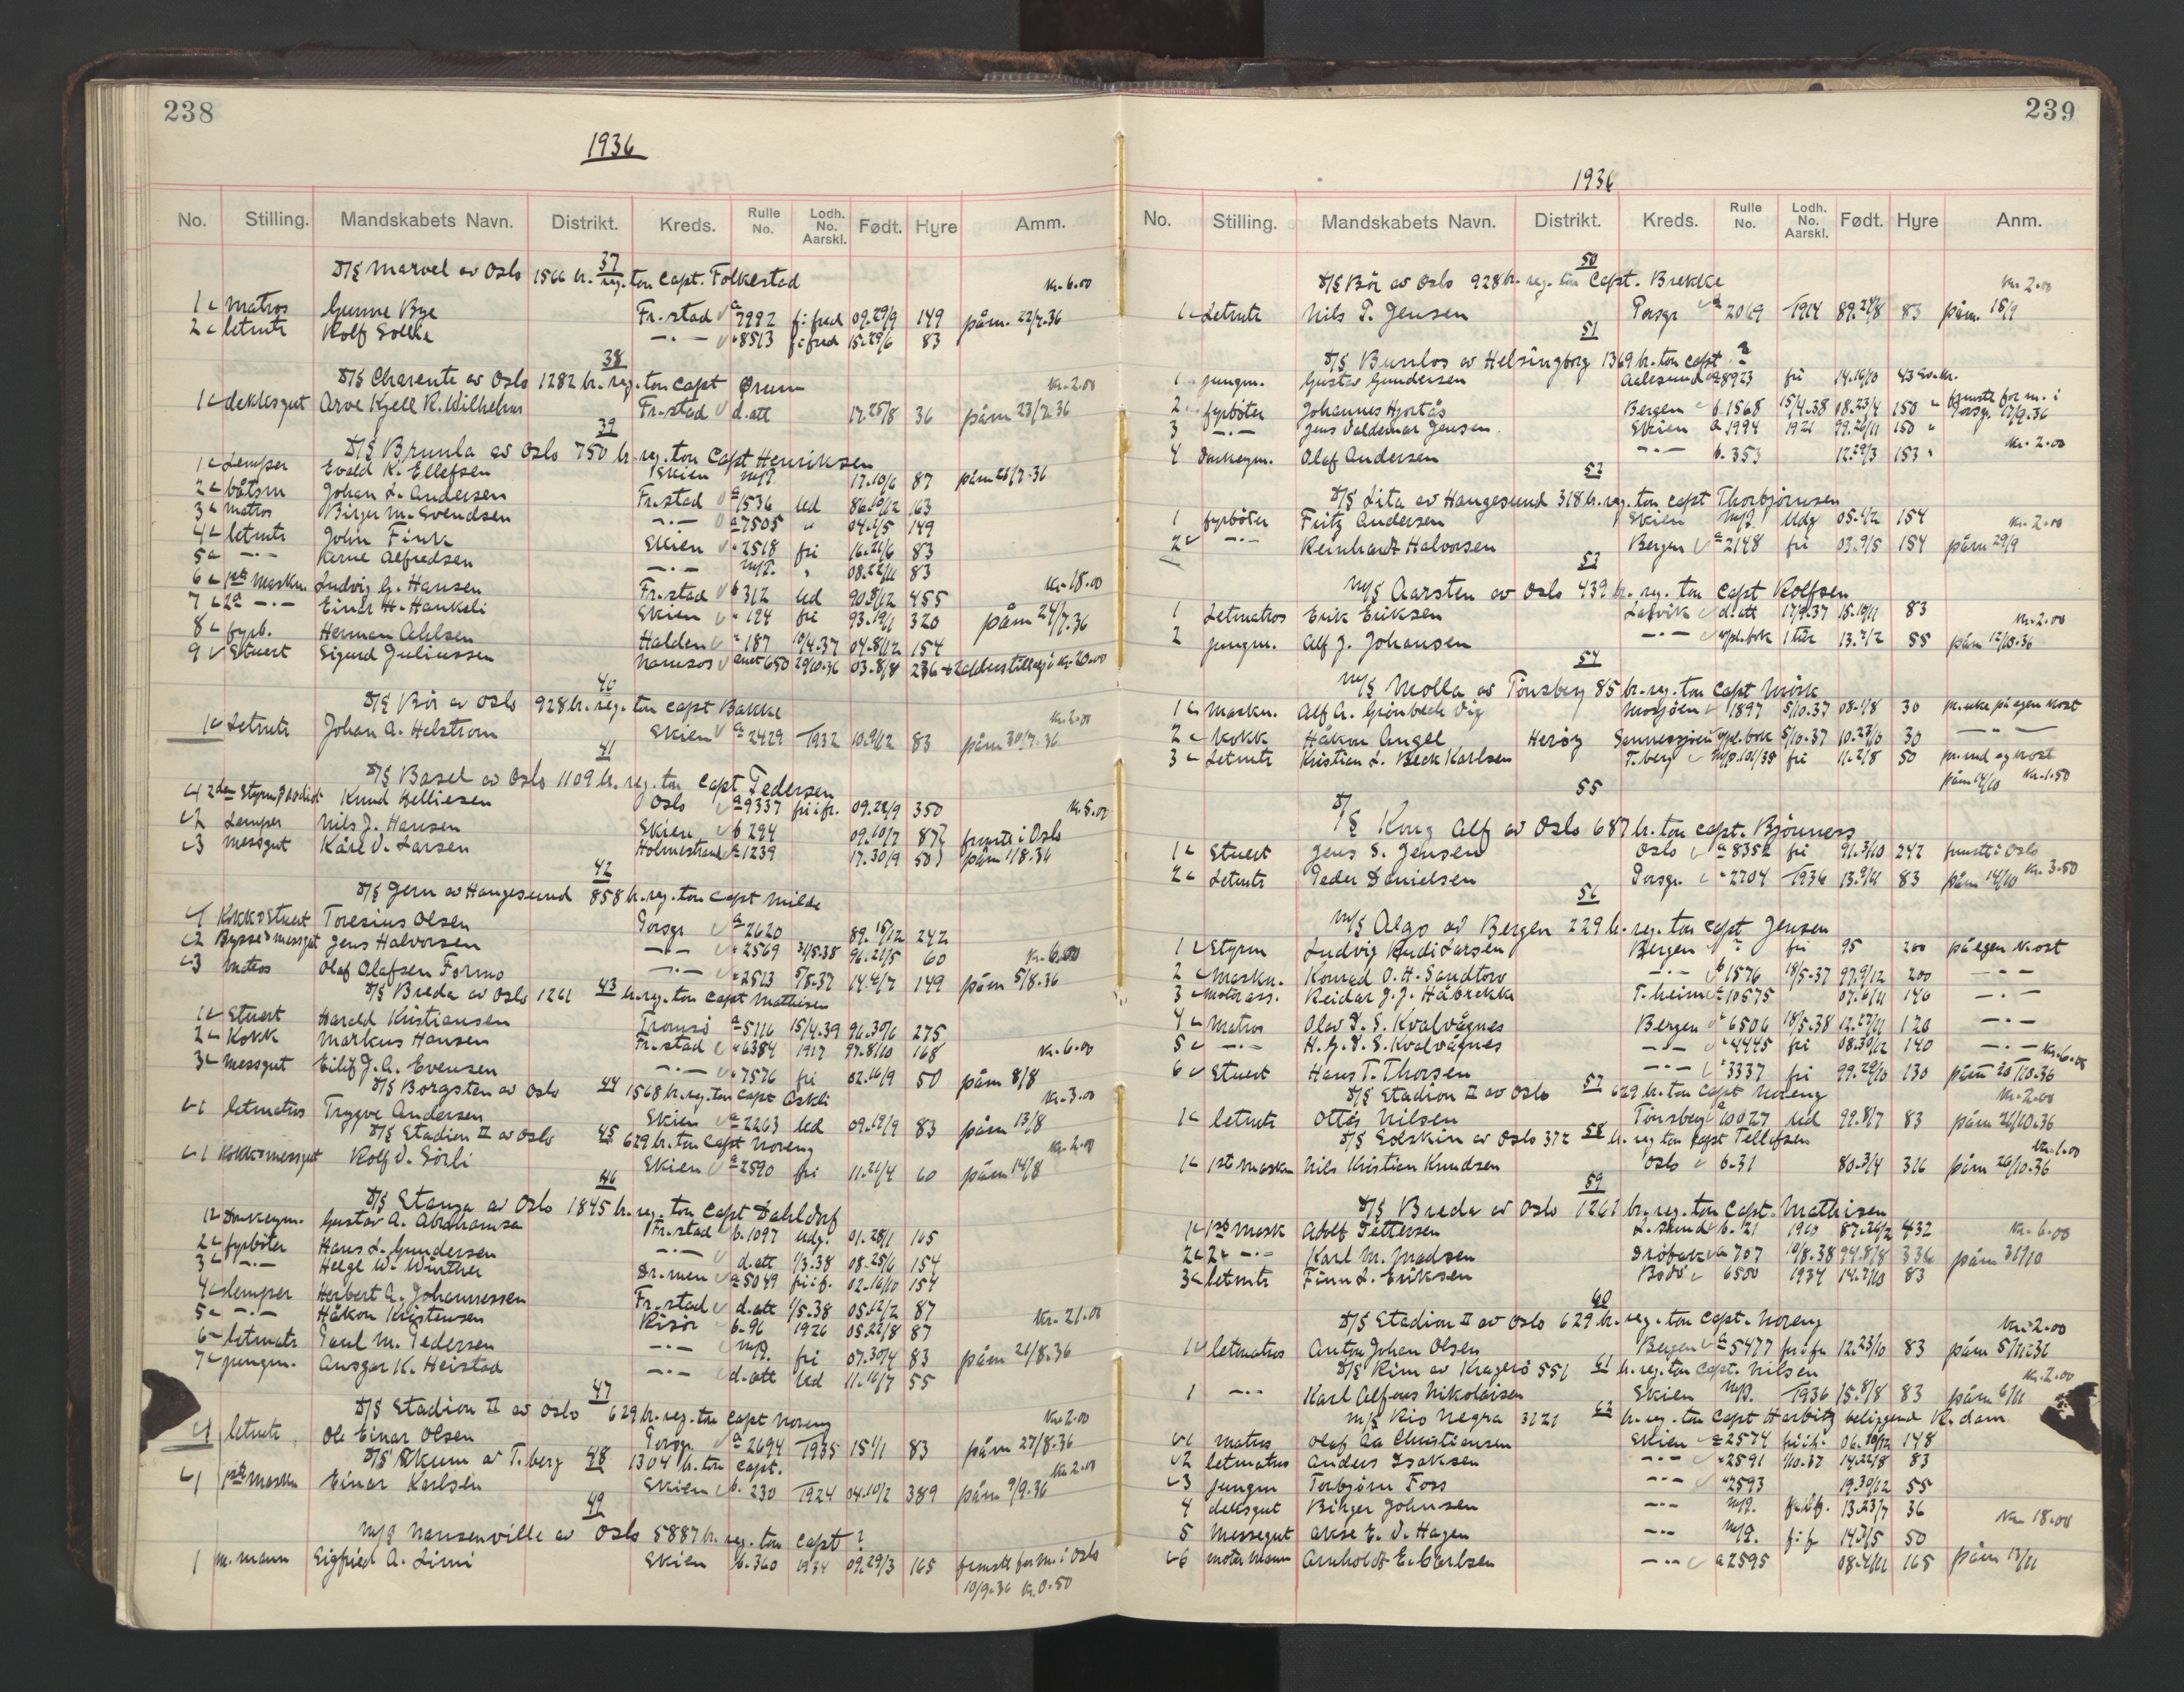 238
1936
No. Stilling. Mandskabets Navn. Distrikt. Kreds. Rulle No. Lodh. No. Aarskl. Født. Hyre Amm.
37
D/S Marvel av Oslo 1566 br. reg. ton Capt. Folkestad
kr. 6.00
1 matros Gunne Bye Fr.stad a 7992 fi fred 09.29/9 149 påm. 22/7.36
2 letmtr Rolf Solli -"- 8513 fi fred 15.29/6 83
38
D/S Charente av Oslo 1282 br. reg. ton Capt Ørum
kr. 2.00
1 dekksgut Arve Kjell R. Wilhelms Fr.stad d.att 17.25/8 36 påm 23/7.36
39
D/S Brunla av Oslo 750 br. reg. ton Capt Henriksen
1 Lemper Evald K. Ellefsen Skien m/p. 17.10/6 87 påm 28/7.36
2 båtsm Johan L. Andersen Fr.stad a 1536 led 86.10/12 63
3 matros Birger M. Svendsen -"- a 7505 " 04.2/5 149
4 letmtr John Fink Skien 2518 fri 16.21/6 83
5 -"- Rerne Alfredsen -"- m/p. " 08.22/11 83
6 1st maskn. Ludvig G. Hansen Fr.stad b 312 led 90.8/12 455 kr. 18.00
7 2d -"- Einar H. Haukeli Skien 124 fri 93.19/1 320 påm 24/7.36
8 fyrb. Herman Ahlsen Halden 187 10/4.37 04.8/12 154
9 Stuert Sigurd Juliussen Namsos anet 650 29/10.36 03.8/8 236 + 2 alderstillegg kr. 20.00
40
D/S Bör av Oslo 928 br. reg. ton Capt Bakke
kr. 2.00
1 Letmtr Johan A. Halstrom Skien a 2429 1932 10.9/12 83 påm 30/7.36
41
D/S Basel av Oslo 1109 br. reg. ton Capt Pedersen
1 2den Styrm Knud Kelliesen Oslo a 9337 fri i fr. 09.28/9 350 kr. 5.00
2 Lemper Nils J. Hansen Skien b 294 09.10/7 87 fremst i Oslo
3 messgut Kåre V. Larsen Holmestrand a 1239 17.30/9 50 påm 1/8.36
42
D/S Jern av Haugesund 858 br. reg. ton Capt Milde
1 Kokk & Stuert Toresius Olsen Porsgr a 2620 89.15/12 242
2 Bysse & messgut Jens Halvorsen -"- 2569 31/5.38 96.21/5 60 kr. 6.00
3 matros Olaf Olafsen Formo -"- 2513 5/8.37 14.4/7 149 påm 5/8.36
43
D/S Breda av Oslo 1261 br. reg. ton Capt Mathisen
1 Stuert Harald Kristiansen Tromsö a 5116 15/4.39 96.30/6 275
2 Kokk Markus Hansen Fr.stad 6384 1917 97.8/10 168 kr. 6.00
3 messgut Eilif J. A. Evensen -"- 7576 fri 02.16/9 50 påm 8/8
44
D/S Borgsten av Oslo 1568 br. reg. ton Capt Askli
kr. 3.00
1 letmatros Trygve Andersen Skien a 2263 led 09.12/9 83 påm 13/8
45
D/S Stadion II av Oslo 629 br. ton Capt Noreng
kr. 2.00
1 Kokk & messgut Rolf V. Sörli Skien a 2590 fri 11.21/4 60 påm 14/8
46
D/S Stanja av Oslo 1845 br. reg. ton Capt Dahldorf
1 Donkeym. Gustav A. Abrahamsen Fr.stad b. 1097 udg. 01.28/1 165
2 fyrböter Hans L. Gundersen -"- d.att 1/3.38 08.25/6 154
3 -"- Helge W. Winther Dr.men a 5049 fri i f. 02.16/10 154
4 lemper Herbert A. Johannessen Fr.stad d.att 1/5.38 05.12/2 87
5 -"- Håkon Kristensen Risör b. 96 1926 05.22/8 87 kr. 21.00
6 letmatr Paul M. Pedersen -"- m/p. fri 07.30/4 83 påm 21/8.36
7 jungm. Ansgar K. Heistad -"- d.att led 11.16/7 55
47
D/S Stadion II av Oslo 629 br. reg. ton Capt Noreng
kr. 2.00
1 letmtr Ole Einar Olsen Porsgr a 2694 1935 15.1/1 83 påm 27/8.36
48
D/S Skum av T.berg 1304 br. ton Capt.
kr. 2.00
1 1ste Maskn Einar Karlsen Skien b. 230 1924 04.10/2 389 påm 9/9.36
49
M/S Nansenville av Oslo 5887 br. reg. ton Capt ?
1 m. mann Sigfried A. Limi Skien b. 360 1934 09.29/3 165 fremst for m. i Oslo
10/9.36 kr. 0.50
239
1936
No. Stilling. Mandskabets Navn. Distrikt. Kreds. Rulle No. Lodh. No. Aarskl. Født. Hyre Anm.
50
D/S Bör av Oslo 928 br. reg. ton Capt. Brekke
kr. 2.00
1 Letmtr Nils P. Jensen Porsgr a 2069 1914 89.24/8 83 påm. 15/9
51
D/S Bunlos av Helsingborg 1369 br. ton Capt ?
1 jungm. Gustav Gundersen Aalesund a 8923 fri 14.16/10 43 sv. kr.
2 fyrböter Johannes Hjortås Bergen b. 1568 15/4.38 08.23/4 150 " fremst for m. i
3 -"- Jens Valdemar Jensen Skien a 1994 1921 99.26/11 150 " Porsgr. 17/9.36
4 Donkeym. Olaf Andersen -"- b. 353 12.29/3 153 " kr. 2.00
52
D/S Lita av Haugesund 318 br. reg. ton Capt Thorbjörnsen
1 fyrböter Fritz Andersen Skien m/p. Udg 05.9/2 154 kr. 2.00
2 -"- Reinhardt Halvorsen Bergen a 2148 fri 03.9/5 154 påm 29/9
53
M/S Aarsten av Oslo 439 br. reg. ton Capt Rolfsen
1 Letmatros Erik Eriksen Larvik d.att 17/9.37 18.10/11 83 kr. 2.00
2 jungm. Alf J. Johansen -"- 1 tur 13.2/2 55 påm 12/10.36
54
M/S Molla av Tönsberg 85 br. reg. ton Capt Mörk
1 Maskn. Alf A. Grönbech Vig Mosjöen 1897 5/10.37 08.4/8 30 pr. uke på egen kost
2 Kokk Håkon Angel Heröy Sannessjöen m/pl. bok 5/10.37 10.23/10 30 -"-
3 Letmtr Kristian L. Beck Karlsen T.berg m/p. 101/35 fri 11.2/8 50 pr. md eg kost
påm 14/10 kr. 1.50
55
D/S Kong Alf av Oslo 687 br. ton Capt. Björness
1 Stuert Jens S. Jensen Oslo a 8352 fri 91.3/10 242 fremst i Oslo
2 Letmtr Peder Danielsen Porsgr. 2704 1936 13.9/11 83 påm 14/10 kr. 3.50
56
M/S Algo av Bergen 229 br. reg. ton Capt Jensen
1 Styrm Ludvig Rudi Larsen Bergen ? fri 95 200 på egen kost
2 Maskn. Konrad O. H. Sandtorv -"- b 1576 18/5.37 97.9/12 200 -"-
3 motorass. Reidar J. J. Håbrekke T.heim a 10575 07.6/11 140 -"-
4 Matros Olav D. S. Kvalvågnes Bergen 6506 18/5.38 12.27/11 120 -"-
5 -"- H. G. D. S. Kvalvågnes -"- 4445 fri 08.30/12 140 -"- kr. 6.00
6 Stuert Hans T. Thorsen -"- 3337 fri 99.29/10 130 påm 20/10.36
57
D/S Stadion II av Oslo 629 br. ton Capt Noreng
kr. 2.00
1 letmtr Ottås Nilsen Tönsberg a 10027 led 99.8/7 83 påm 26/10.36
58
D/S Solskin av Oslo 372 br. reg ton Capt Tellefsen
kr. 1.00
1 1st Maskn Nils Kristian Knudsen Oslo b. 31 80.3/4 316 påm 26/10.36
59
D/S Breda av Oslo 1261 br. reg. ton Capt. Mathisen
1 1ste Mask Adolf Pettersen L.sund b. 21 1920 87.26/2 432 kr. 6.00
2 2 -"- Karl M. Madsen Dröbak 707 10/8.38 94.8/8 336 påm 31/10
3 letmtr Finn L. Eriksen Bodö 6500 1934 14.7/10 83
60
D/S Stadion II av Oslo 629 br. reg. ton Capt. Noreng
kr. 2.00
1 letmatros Anton Johan Olsen Bergen a 5477 fri i fr 12.23/10 83 påm 5/11.36
61
D/S Rim av Kragerö 551 br. reg. ton Capt. Nilsen
kr. 2.00
1 -"- Karl Alfons Nikolaisen Skien m/p. 1936 15.8/8 83 påm 6/11
62
M/S Rio Negra 3121 br. reg. ton Capt Harbitz beliggend R.dam
1 matros Olaf Aa Christiansen Skien a 2574 fri i f. 06.10/12 148
2 letmatros Anders Isaksen -"- 2591 1/10.37 14.22/8 83
3 jungm Torbjörn Foss -"- 2593 19.30/12 55
4 deksgut Birger Johnsen -"- m/p. fri i f. 13.23/7 36 kr 18.00
5 Messegut Akse E. V. Hagen -"- m/p. f i f 14.3/5 50
6 motormann Arnholdt E. Carlsen -"- a 2595 08.4/11 165 påm 13/11